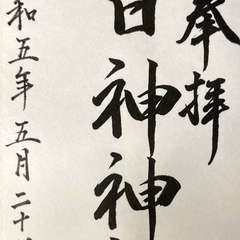 奉拝
日神神
和五年五月二十